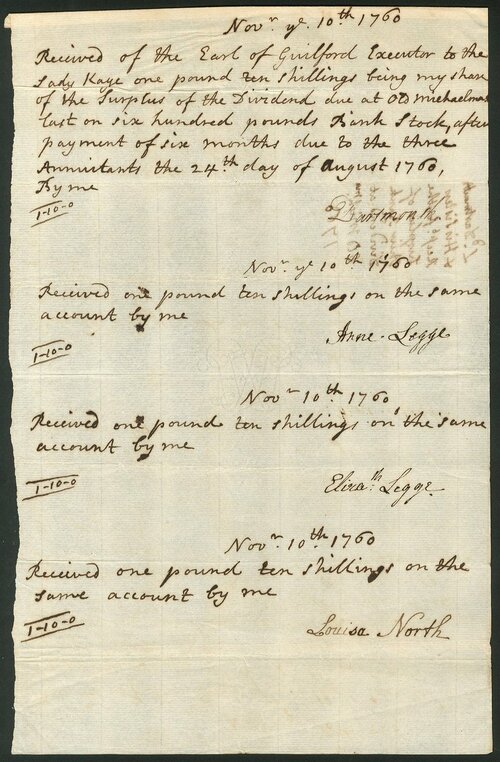 Novr. ye. 10th 1760
Received of the Earl of Guilford Executor to the
Lady Kaye one pound ten shillings being my share
of the Surplus of the Dividend due at Old Michaelmas
last on six hundred pounds Bank Stock, after
payment of six months due to the three
Annuitants the 24th. day of August 1760,
By me
1-10-0
Dartmouth
Novr. ye 10th 1760
Received one pound ten shillings on the same
account by me
Anne Legge
1-10-0
Novr 10th. 1760
Received one pound ten shillings on the same
account by me
Elizath. Legge.
1-10-0
Novr. 10th. 1760
Received one pound ten shillings on the
same account by me
1-10-0
Louisa North